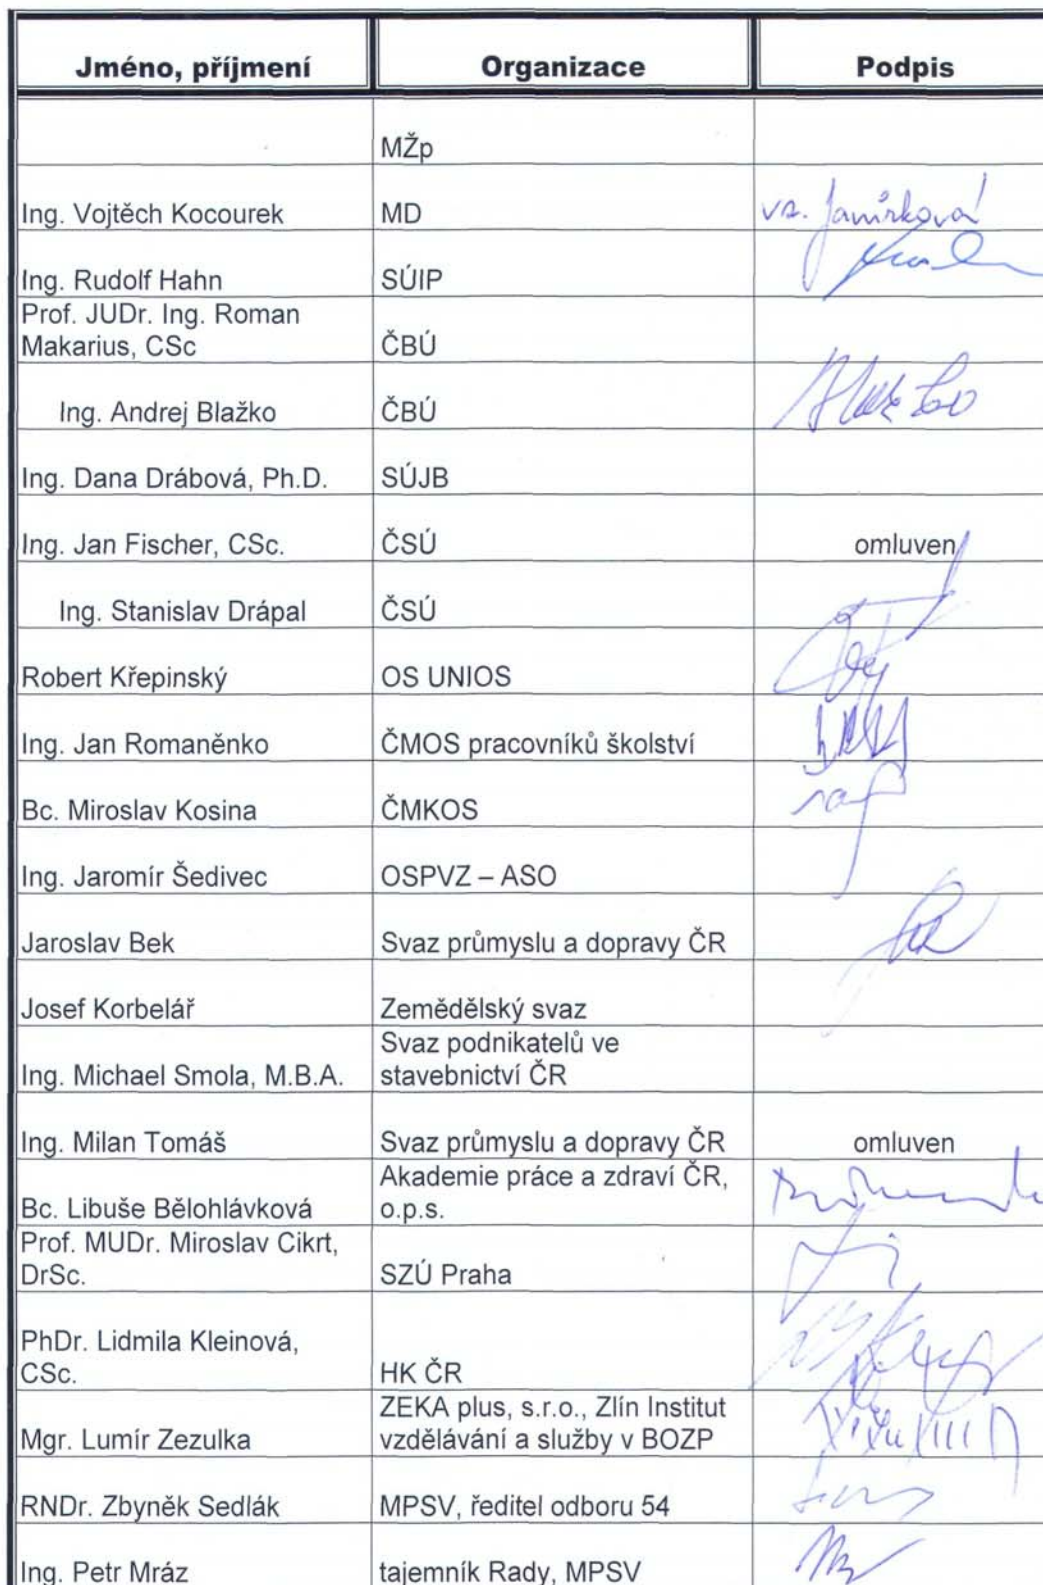 Jméno, příjmení Organizace Podpis
MŽp
Ing. Vojtěch Kocourek MD vz. Janírková
Ing. Rudolf Hahn SÚIP
Prof. JUDr. Ing. Roman
Makarius, CSc ČBÚ
Ing. Andrej Blažko ČBÚ
Ing. Dana Drábová, Ph.D. SÚJB
Ing. Jan Fischer, CSc. ČSÚ omluven
Ing. Stanislav Drápal ČSÚ
Robert Křepinský OS UNIOS
Ing. Jan Romaněnko ČMOS pracovníků školství
Bc. Miroslav Kosina ČMKOS
Ing. Jaromír Šedivec OSPVZ – ASO
Jaroslav Bek Svaz průmyslu a dopravy ČR
Josef Korbelář Zemědělský svaz
Svaz podnikatelů ve
Ing. Michael Smola, M.B.A. stavebnictví ČR
Ing. Milan Tomáš Svaz průmyslu a dopravy ČR omluven
Akademie práce a zdraví ČR,
Bc. Libuše Bělohlávková o.p.s.
Prof. MUDr. Miroslav Cikrt,
DrSc. SZÚ Praha
PhDr. Lidmila Kleinová,
CSc. HK ČR
ZEKA plus, s.r.o., Zlín Institut
Mgr. Lumír Zezulka vzdělávání a služby v BOZP
RNDr. Zbyněk Sedlák MPSV, ředitel odboru 54
Ing. Petr Mráz tajemník Rady, MPSV